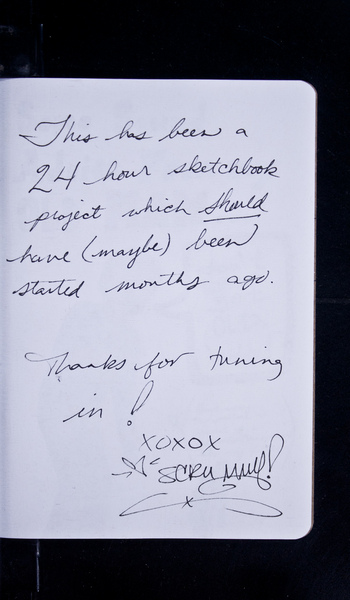 This has been a
24 hour sketchbook
project which should
have (maybe) been
started months ago.
Thanks for tuning
in!
XOXOX
SCRUMMY!
x